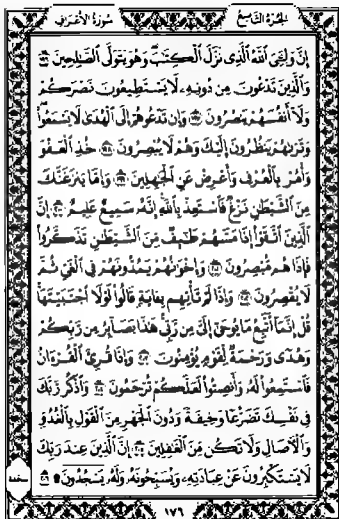 الجزء التاسع
سورة الأعراف
إِنَّ وَلِيِّيَ اللَّهُ الَّذِي نَزَّلَ الْكِتَابَ وَهُوَ يَتَوَلَّى الصَّالِحِينَ ١٩٦
وَالَّذِينَ تَدْعُونَ مِن دُونِهِ لَا يَسْتَطِيعُونَ نَصْرَكُمْ
وَلَا أَنفُسَهُمْ يَنصُرُونَ ١٩٧ وَإِن تَدْعُوهُمْ إِلَى الْهُدَى لَا يَسْمَعُوا
وَتَرَاهُمْ يَنظُرُونَ إِلَيْكَ وَهُمْ لَا يُبْصِرُونَ ١٩٨ خُذِ الْعَفْوَ
وَأْمُرْ بِالْعُرْفِ وَأَعْرِضْ عَنِ الْجَاهِلِينَ ١٩٩ وَإِمَّا يَنزَغَنَّكَ
مِنَ الشَّيْطَانِ نَزْغٌ فَاسْتَعِذْ بِاللَّهِ إِنَّهُ سَمِيعٌ عَلِيمٌ ٢٠٠ إِنَّ
الَّذِينَ اتَّقَوْا إِذَا مَسَّهُمْ طَائِفٌ مِنَ الشَّيْطَانِ تَذَكَّرُوا
فَإِذَا هُم مُّبْصِرُونَ ٢٠١ وَإِخْوَانُهُمْ يَمُدُّونَهُمْ فِي الْغَيِّ ثُمَّ
لَا يُقْصِرُونَ ٢٠٢ وَإِذَا لَمْ تَأْتِهِم بِآيَةٍ قَالُوا لَوْلَا اجْتَبَيْتَهَا
قُلْ إِنَّمَا أَتَّبِعُ مَا يُوحَى إِلَيَّ مِن رَّبِّي هَذَا بَصَائِرُ مِن رَّبِّكُمْ
وَهُدًى وَرَحْمَةٌ لِّقَوْمٍ يُؤْمِنُونَ ٢٠٣ وَإِذَا قُرِئَ الْقُرْآنُ
فَاسْتَمِعُوا لَهُ وَأَنصِتُوا لَعَلَّكُمْ تُرْحَمُونَ ٢٠٤ وَاذْكُر رَّبَّكَ
فِي نَفْسِكَ تَضَرُّعًا وَخِيفَةً وَدُونَ الْجَهْرِ مِنَ الْقَوْلِ بِالْغُدُوِّ
وَالْآصَالِ وَلَا تَكُن مِّنَ الْغَافِلِينَ ٢٠٥ إِنَّ الَّذِينَ عِندَ رَبِّكَ
لَا يَسْتَكْبِرُونَ عَنْ عِبَادَتِهِ وَيُسَبِّحُونَهُ وَلَهُ يَسْجُدُونَ ٢٠٦
سجدة
١٧٦